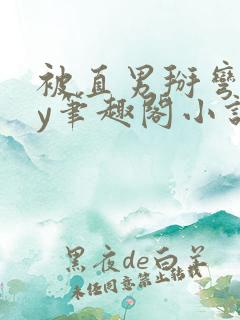 被直男掰彎
y筆趣閣小說
黑夜de白羊
未经同意禁止转载